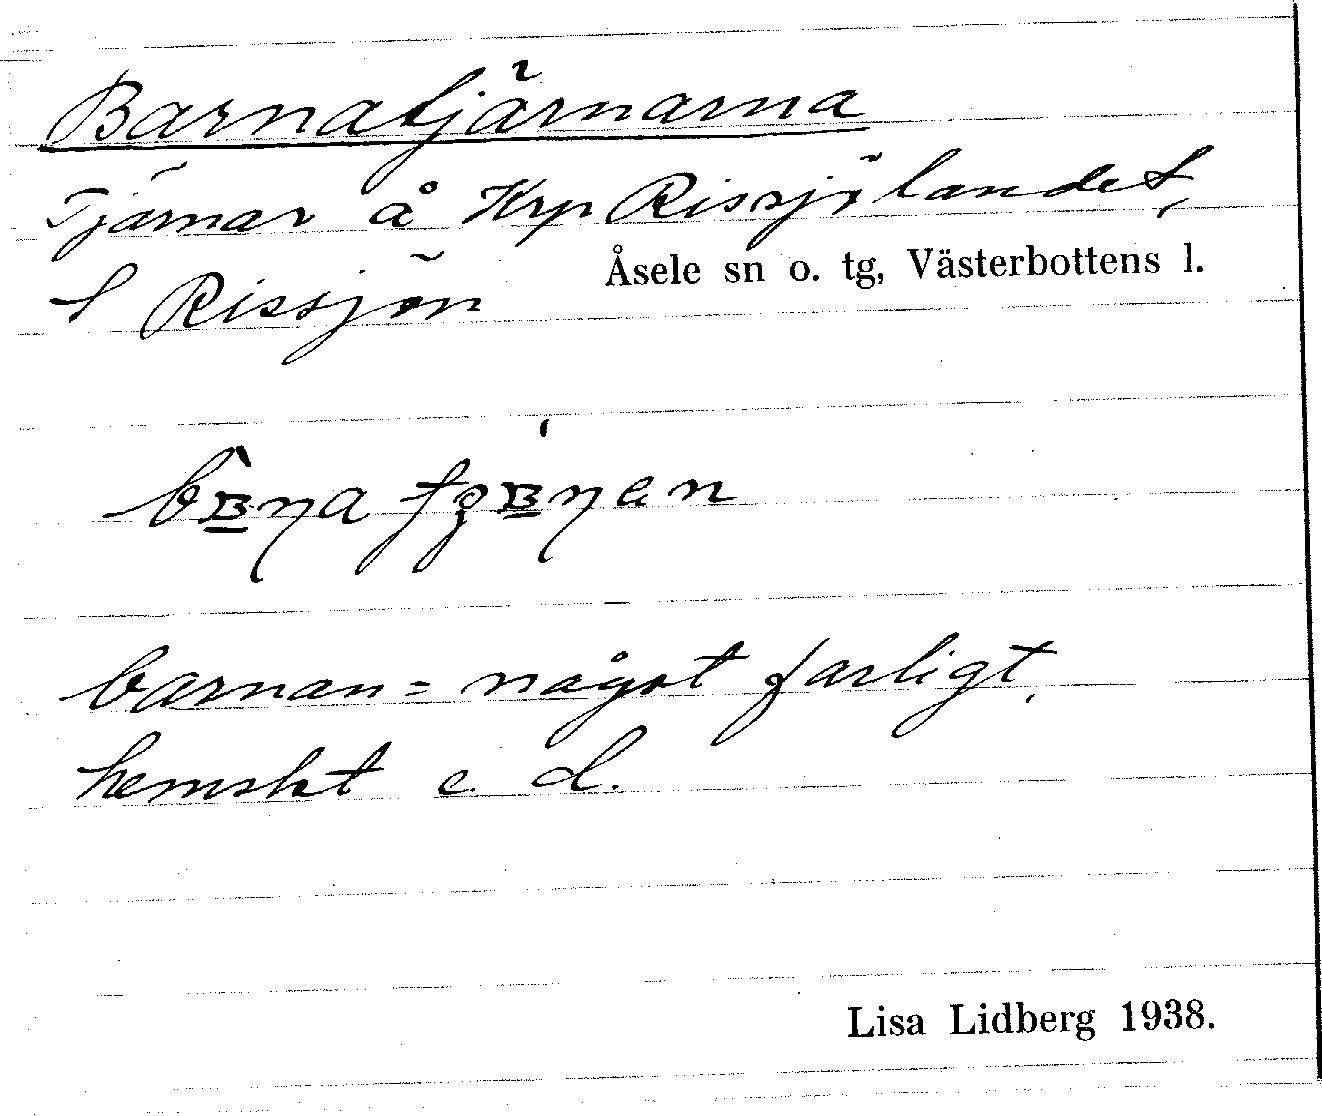 Barnatjärnarna
Tjärnar å Krp Rissjölandet,
t Rissjön
Åsele sn o. tg, Västerbottens l.
barnan = något farligt,
hemskt e. d.
Lisa Lidberg 1938.